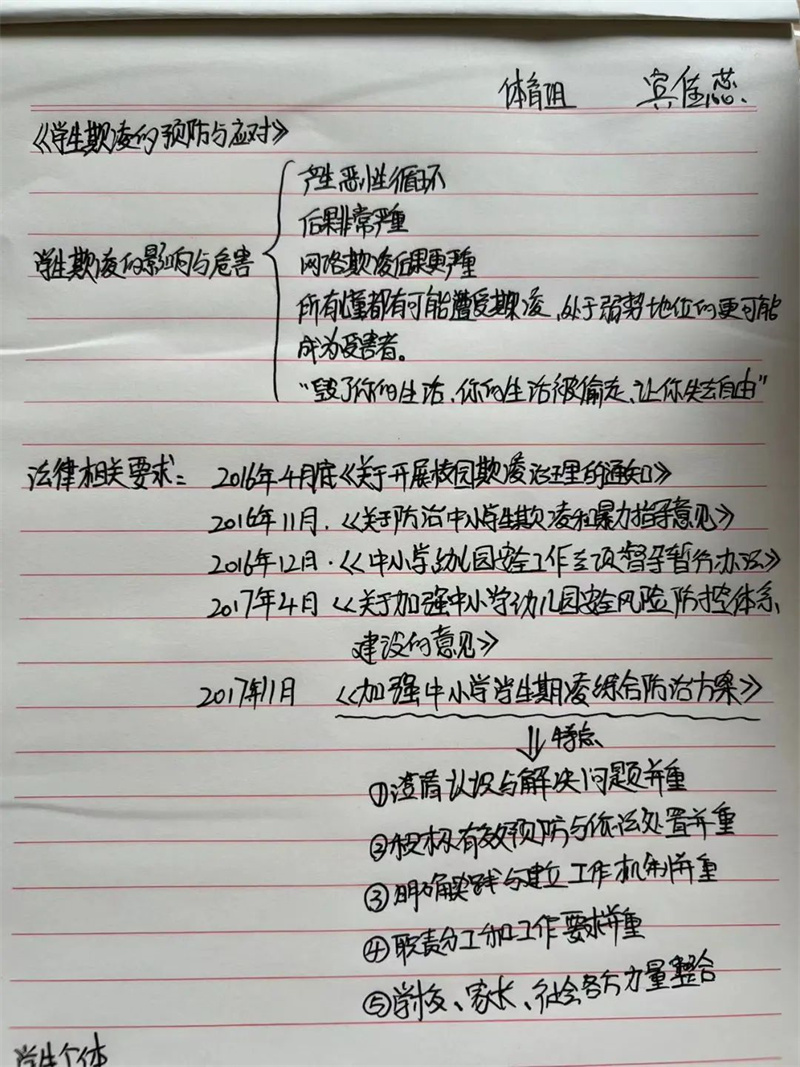 体育组 宾佳蕊
《学生欺凌的预防与应对》
学生欺凌的影响与危害
产生恶性循环
后果非常严重
网络欺凌后果更严重
所有儿童都有可能遭受欺凌,处于弱势地位的更可能
成为受害者。
“毁了你的生活,你的生活被偷走,让你失去自由”
法律相关要求:2016年4月底《关于开展校园欺凌治理的通知》
2016年11月.《关于防治中小学生欺凌和暴力指导意见》
2016年12月.《中小学幼儿园安全工作专项督导暂行办法》
2017年4月《关于加强中小学幼儿园安全风险防控体系
建设的意见》
2017年11月 《加强中小学学生期凌综合防治方案》
特点
①澄清认识与解决问题并重
②积极有效预防与依法处置并重
③明确实践与建立工作机制并重
④职责分工和工作要求并重
⑤学校、家长、社会各方力量整合
学生个体